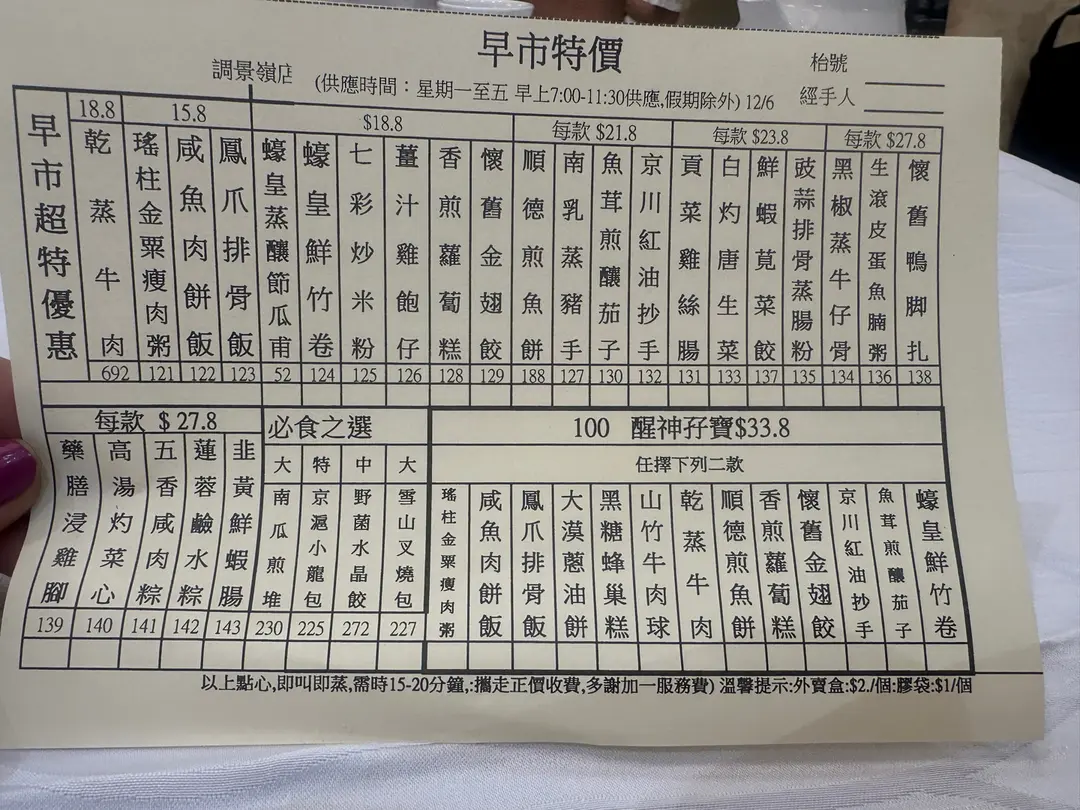 早市特價
枱號
調景嶺店 (供應時間：星期一至五 早上7:00-11:30供應,假期除外) 12/6 經手人
早市超特優惠
18.8 15.8 $18.8 每款 $21.8 每款 $23.8 每款 $27.8
乾蒸牛肉 692
瑤柱金粟瘦肉粥 121
咸魚肉餅飯 122
鳳爪排骨飯 123
蠔皇蒸釀節瓜甫 52
蠔皇鮮竹卷 124
七彩炒米粉 125
薑汁雞飽仔 126
香煎蘿蔔糕 128
懷舊金翅餃 129
順德煎魚餅 188
南乳蒸豬手 127
魚茸煎釀茄子 130
京川紅油抄手 132
貢菜雞絲腸 131
白灼唐生菜 133
鮮蝦莧菜餃 137
豉蒜排骨蒸腸粉 135
黑椒蒸牛仔骨 134
生滾皮蛋魚腩粥 136
懷舊鴨脚扎 138
每款 $ 27.8
藥膳浸雞腳 139
高湯灼菜心 140
五香咸肉粽 141
蓮蓉鹼水粽 142
韭黃鮮蝦腸 143
必食之選
大 南瓜煎堆 230
特 京滬小龍包 225
中 野菌水晶餃 272
大 雪山叉燒包 227
100 醒神孖寶$33.8
任擇下列二款
瑤柱金粟瘦肉粥
咸魚肉餅飯
鳳爪排骨飯
大漠蔥油餅
黑糖蜂巢糕
山竹牛肉球
乾蒸牛肉
順德煎魚餅
香煎蘿蔔糕
懷舊金翅餃
京川紅油抄手
魚茸煎釀茄子
蠔皇鮮竹卷
以上點心,即叫即蒸,需時15-20分鐘,:攜走正價收費,多謝加一服務費) 溫馨提示:外賣盒:$2./個:膠袋:$1/個